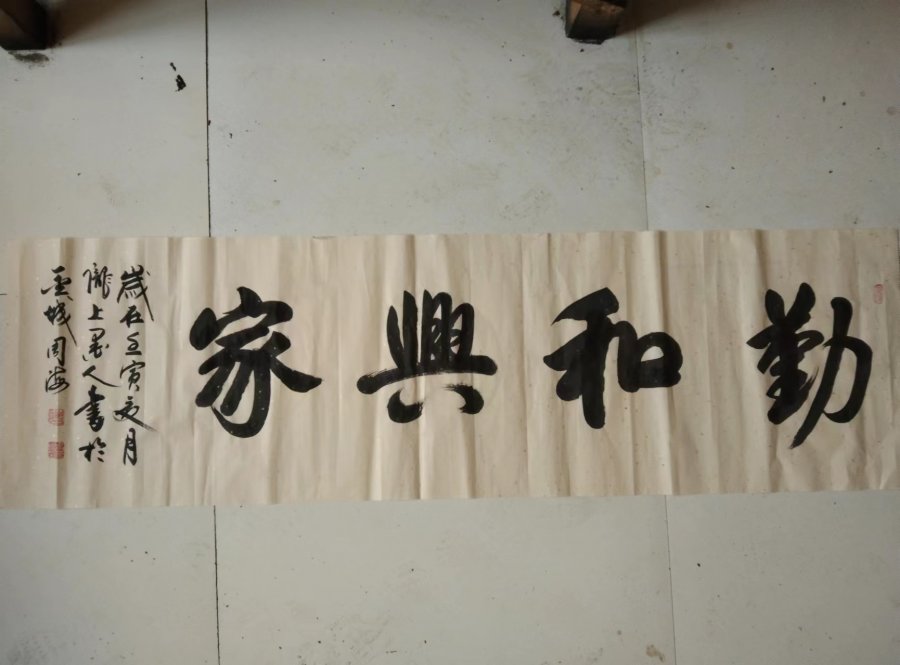 勤和興家
歲在壬寅夏月
隴上墨人書於
金城周海